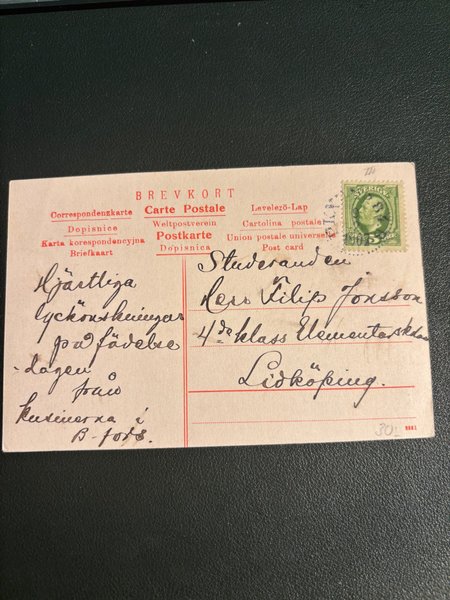 BREVKORT
Correspondenzkarte Carte Postale Levelező-Lap
Dopisnice Weltpostverein Cartolina postale
Karta korespondencyjna Postkarte Union postale universelle
Briefkaart Dopisnica Post card
SVERIGE
5
1907
Hjästliga
lyckönskningar
på födelse
-dagen
från
kusinerna i
B-fors.
Studeranden
Herr Filip Jonsson
4de klass Elementarskolan
Lidköping.
30:-